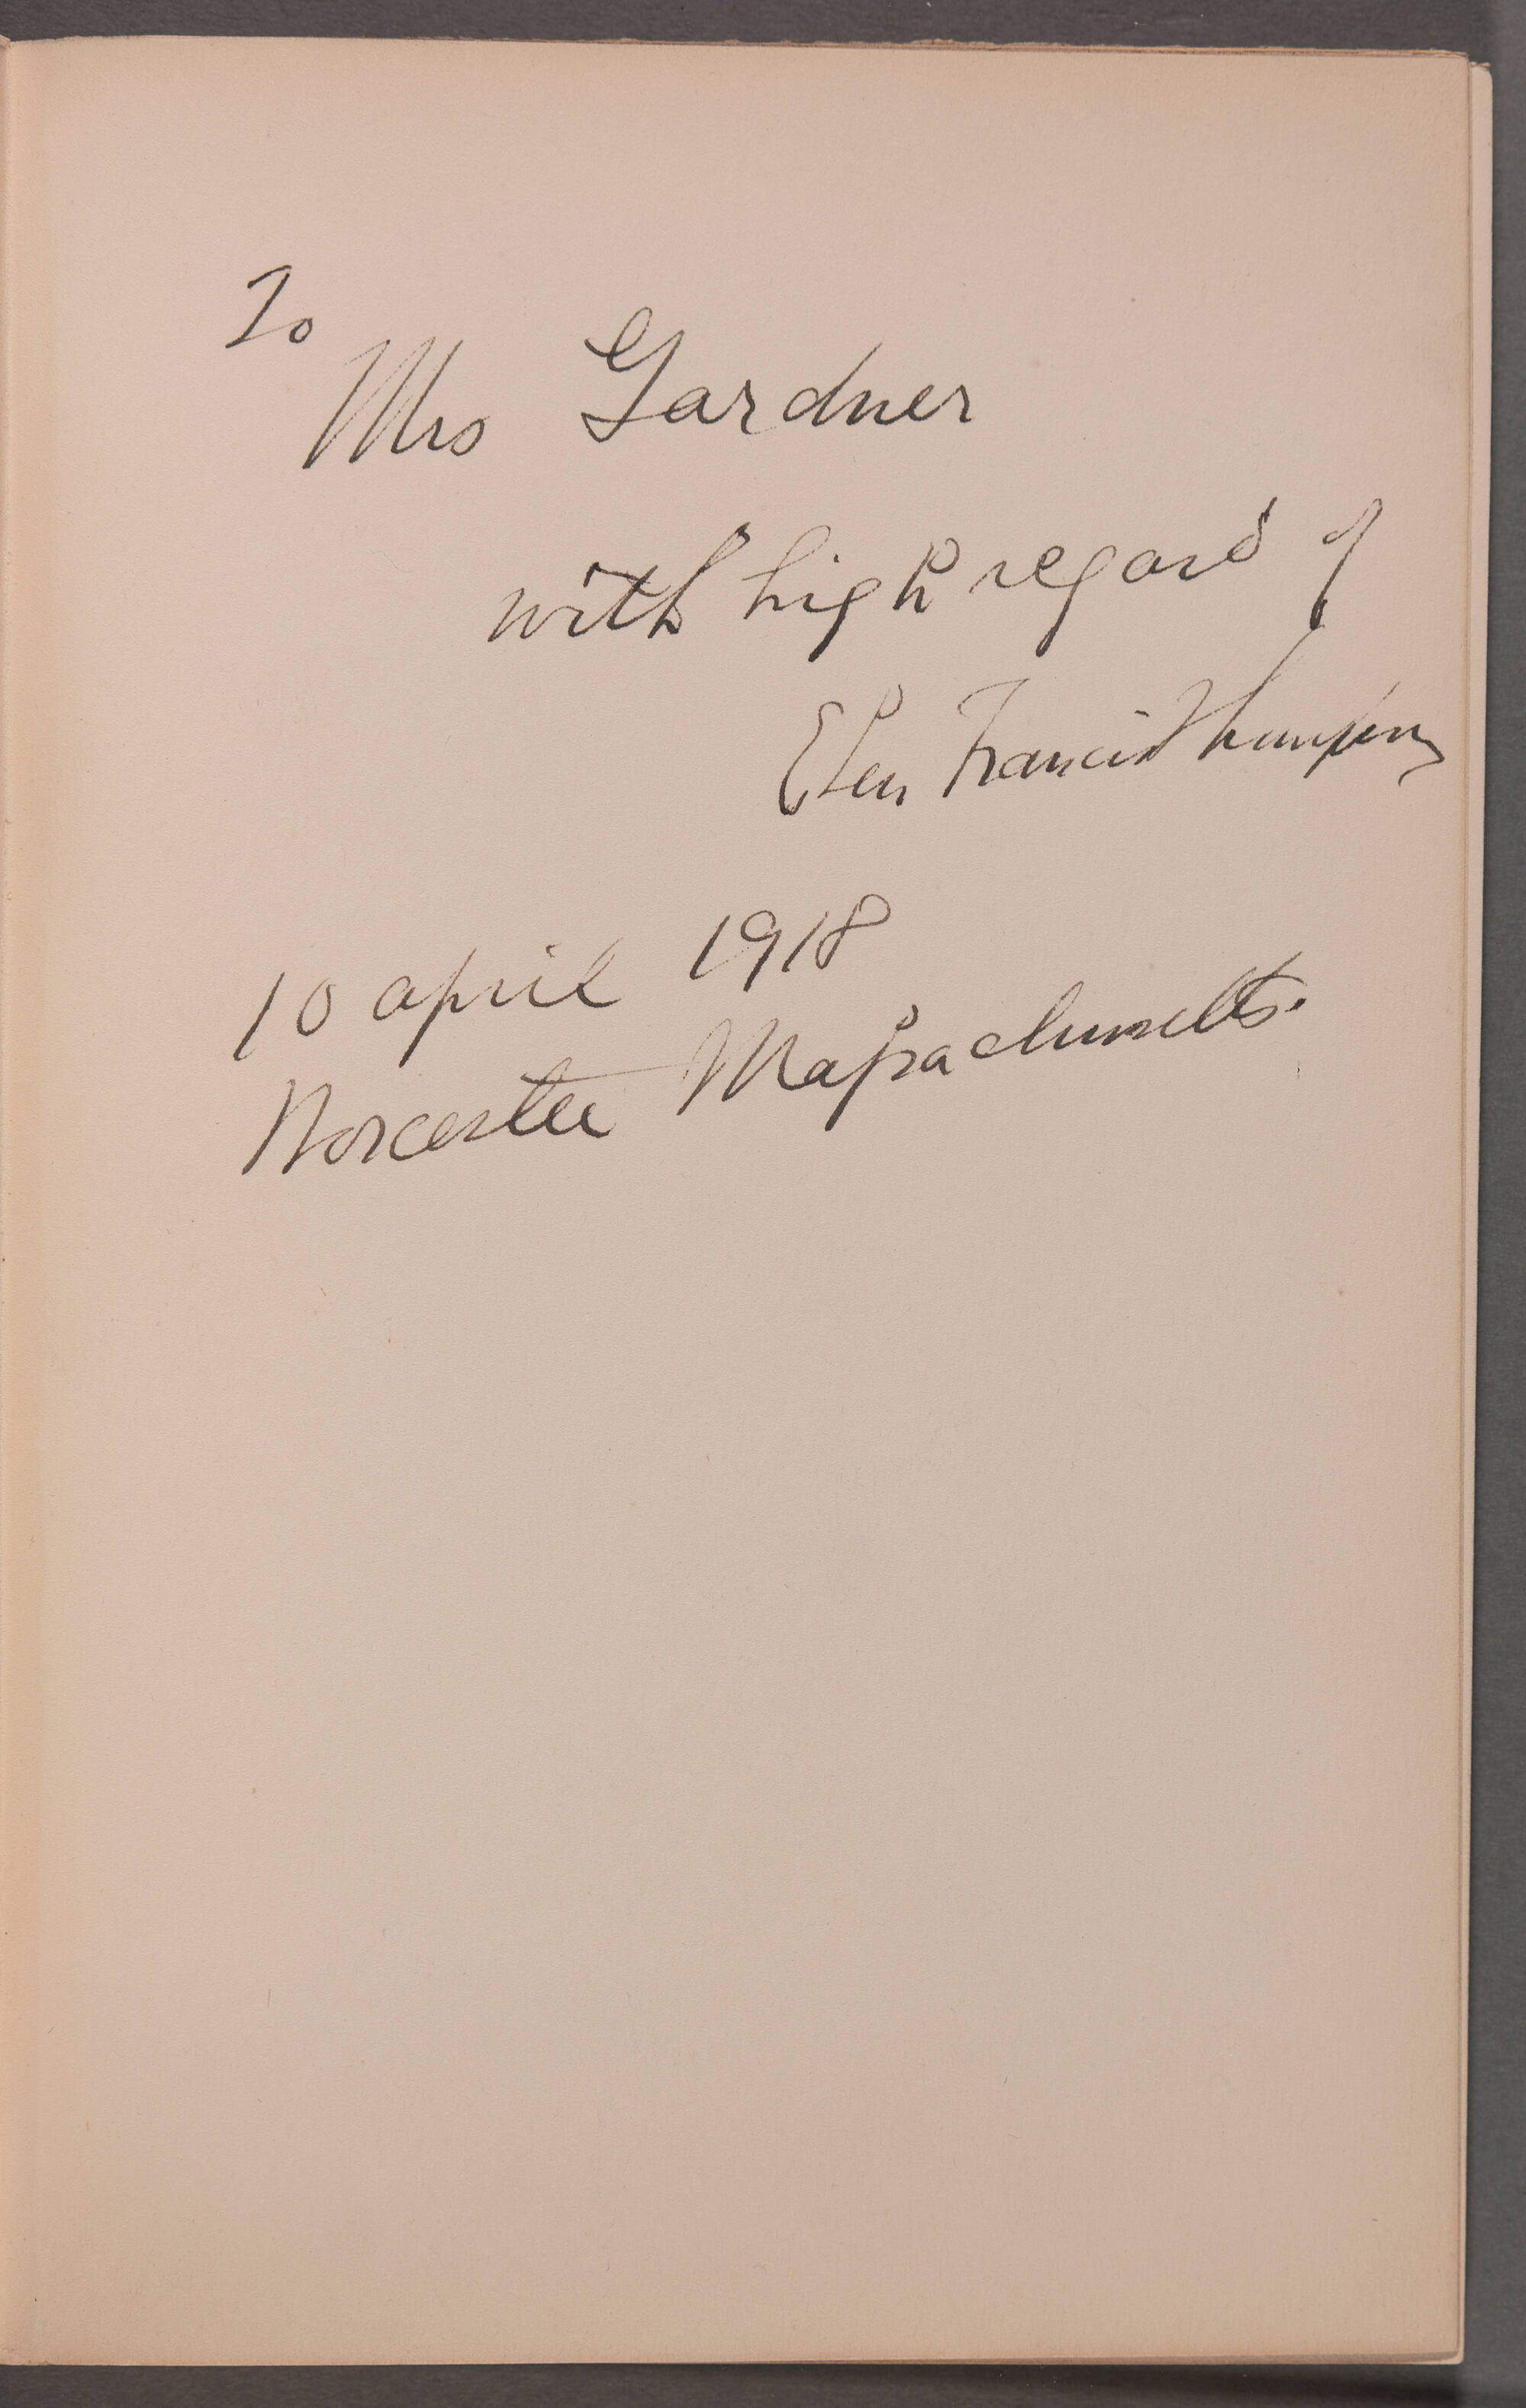 To
Mrs Gardner
with high regard of
Eben Francis Thompson
10 april 1918
Worcester Massachusetts.